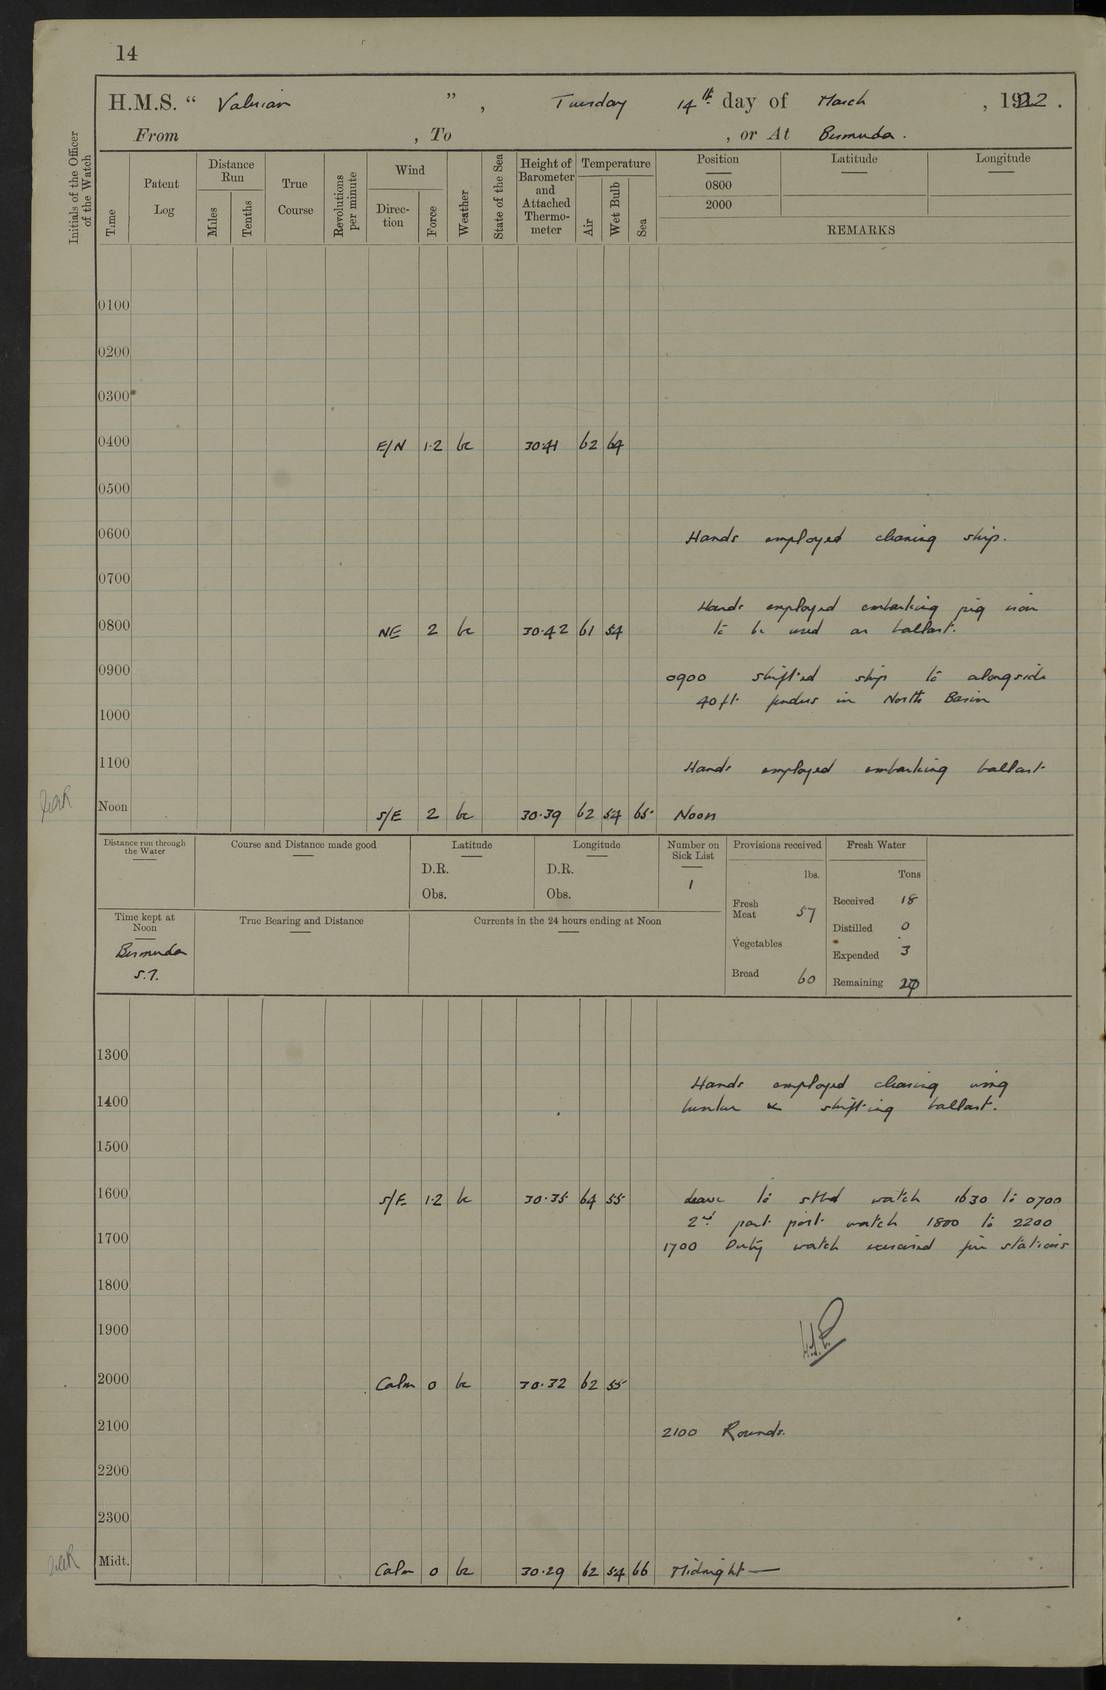 14
H.M.S. " Valerian " , Tuesday 14th day of March , 1922 .
From , To , or At Bermuda .
Initials of the Officer of the Watch
Time
Patent Log
Distance Run
Miles
Tenths
True Course
Revolutions per minute
Wind
Direction
Force
Weather
State of the Sea
Height of Barometer and Attached Thermometer
Temperature
Air
Wet Bulb
Sea
Position Latitude Longitude
0800
2000
REMARKS
0100
0200
0300
0400 E/N 1·2 bc 30·41 62 64
0500
0600 Hands employed cleaning ship.
0700
Hands employed embarking pig iron
0800 NE 2 bc 30·42 61 54 to be used as ballast.
0900 0900 Shifted ship to alongside
40 ft. fenders in North Basin
1000
1100 Hands employed embarking ballast.
Noon S/E 2 bc 30·39 62 54 65 Noon
Distance run through the Water
Course and Distance made good
Latitude
D.R.
Obs.
Longitude
D.R.
Obs.
Number on Sick List
1
Provisions received
lbs.
Fresh Meat 57
Vegetables
Bread 60
Fresh Water
Tons
Received 18
Distilled 0
Expended 3
Remaining
Time kept at Noon
Bermuda
S.T.
True Bearing and Distance
Currents in the 24 hours ending at Noon
1300
Hands employed cleaning wing
1400 bunker & shifting ballast.
1500
1600 S/E 1·2 bc 30·35 64 55 Leave to stbd watch 1630 to 0700
2nd part port watch 1800 to 2200
1700 1700 Duty watch exercised fire stations
1800
1900
2000 Calm 0 bc 30·32 62 55
2100 2100 Rounds.
2200
2300
Midt. Calm 0 bc 30·29 62 54 66 Midnight —